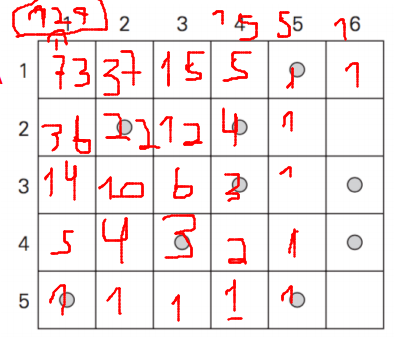 129 1 2 3 4 15 5 5 1 6
1 73 37 15 5 1 1
2 36 22 12 4 1
3 14 10 6 3 1
4 5 4 3 2 1
5 1 1 1 1 1